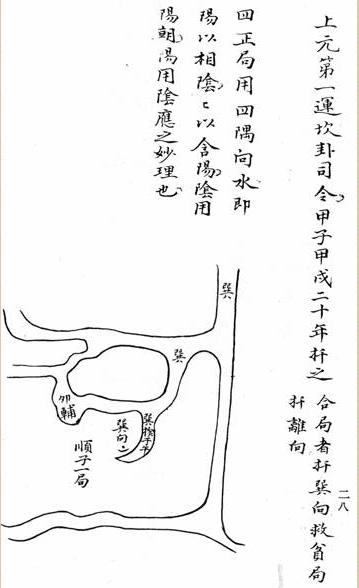 上元第一運坎卦司令甲子甲戌二十年扦之
合局者扦巽向救貧局
扦離向
二八
四正局用四隅向水即
陽以相陰〻以含陽陰用
陽朝陽用陰應之妙理也
巽
巽
卯輔
巽向〻
順子一局